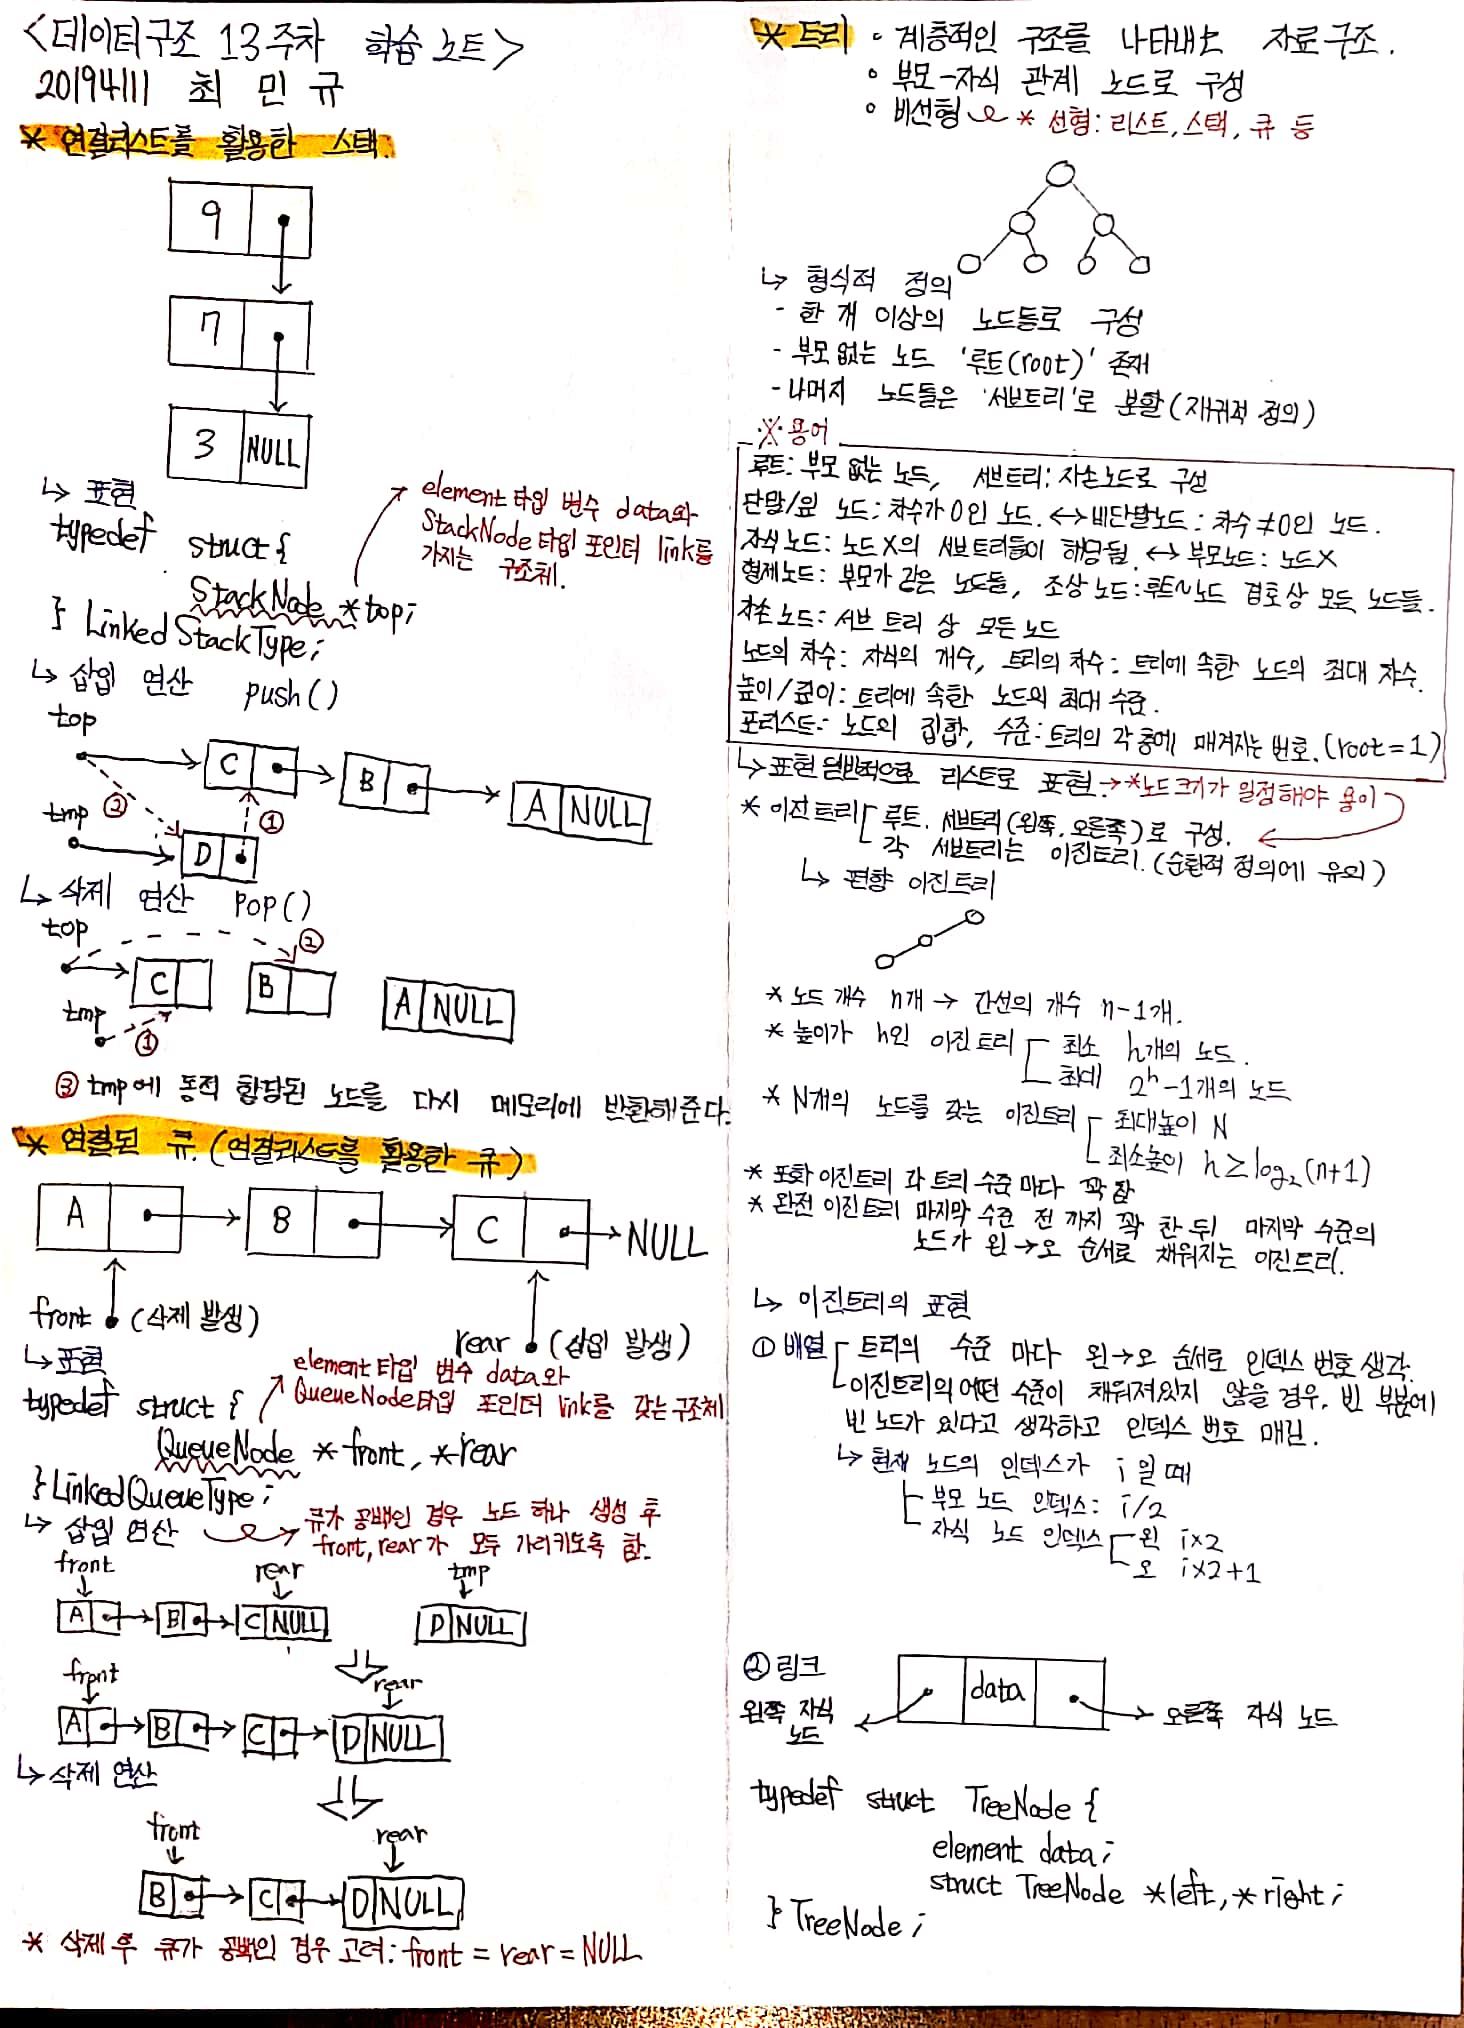 <데이터구조 13주차 학습 노트>
20194111 최민규
* 연결리스트를 활용한 스택.
9
7
3 NULL
↳ 표현
element타입 변수 data와
StackNode타입 포인터 link를
가지는 구조체.
typedef struct {
StackNode *top;
} LinkedStackType;
↳ 삽입 연산 push()
top
C B A NULL
② ①
tmp
D
↳ 삭제 연산 pop()
top
②
C B A NULL
tmp
①
③ tmp에 동적 할당된 노드를 다시 메모리에 반환해준다.
* 연결된 큐.(연결리스트를 활용한 큐)
A B C NULL
front (삭제 발생)
rear (삽입 발생)
↳ 표현
element타입 변수 data와
QueueNode타입 포인터 link를 갖는 구조체
typedef struct {
QueueNode *front, *rear
} LinkedQueueType;
↳ 삽입 연산
큐가 공백인 경우 노드 하나 생성 후
front, rear가 모두 가리키도록 함.
front rear tmp
A B C NULL D NULL
front rear
A B C D NULL
↳ 삭제 연산
front rear
B C D NULL
* 삭제 후 큐가 공백인 경우 고려: front = rear = NULL
* 트리 ∘ 계층적인 구조를 나타내는 자료구조.
∘ 부모-자식 관계 노드로 구성
∘ 비선형 * 선형: 리스트, 스택, 큐 등
↳ 형식적 정의
- 한 개 이상의 노드들로 구성
- 부모 없는 노드 '루트(root)' 존재
- 나머지 노드들은 '서브트리'로 분할(재귀적 정의)
※ 용어
루트: 부모 없는 노드, 서브트리: 자손노드로 구성
단말/잎 노드: 차수가 0인 노드. ↔ 비단말노드: 차수≠0인 노드.
자식 노드: 노드 X의 서브트리들이 해당됨. ↔ 부모노드: 노드X
형제노드: 부모가 같은 노드들, 조상 노드: 루트~노드 경로상 모든 노드들.
자손 노드: 서브 트리 상 모든 노드
노드의 차수: 자식의 개수, 트리의 차수: 트리에 속한 노드의 최대 차수.
높이/깊이: 트리에 속한 노드의 최대 수준.
포리스트: 노드의 집합, 수준: 트리의 각 층에 매겨지는 번호. (root=1)
↳ 표현 일반적으로 리스트로 표현 → *노드 크기가 일정해야 용이
* 이진트리 루트, 서브트리(왼쪽, 오른쪽)로 구성.
각 서브트리는 이진트리. (순환적 정의에 유의)
↳ 편향 이진트리
* 노드 개수 n개 → 간선의 개수 n-1개.
* 높이가 h인 이진트리 최소 h개의 노드.
최대 2ʰ-1개의 노드
* N개의 노드를 갖는 이진트리 최대높이 N
최소높이 h≥log₂(n+1)
* 포화 이진트리 각 트리 수준 마다 꽉 참
* 완전 이진트리 마지막 수준 전 까지 꽉 찬 뒤 마지막 수준의
노드가 왼→오 순서로 채워지는 이진트리.
↳ 이진트리의 표현
① 배열 트리의 수준 마다 왼→오 순서로 인덱스 번호 생각.
이진트리의 어떤 수준이 채워져있지 않을 경우, 빈 부분에
빈 노드가 있다고 생각하고 인덱스 번호 매김.
↳ 현재 노드의 인덱스가 i 일 때
부모 노드 인덱스: i/2
자식 노드 인덱스 왼 i×2
오 i×2+1
② 링크
data
왼쪽 자식 노드
오른쪽 자식 노드
typedef struct TreeNode {
element data;
struct TreeNode *left, *right;
} TreeNode;